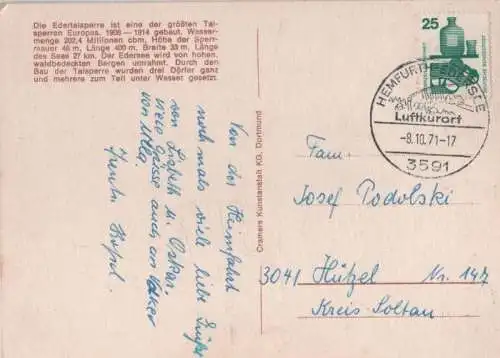 Die Edertalsperre ist eine der größten Tal-
sperren Europas. 1908 — 1914 gebaut. Wasser-
menge 202,4 Millionen cbm, Höhe der Sperr-
mauer 48 m, Länge 400 m, Breite 33 m, Länge
des Sees 27 km. Der Edersee wird von hohen,
waldbedeckten Bergen umrahmt. Durch den
Bau der Talsperre wurden drei Dörfer ganz
und mehrere zum Teil unter Wasser gesetzt.
Von der Heimfahrt
noch mals viele liebe Grüße
von Lisbeth u. Oskar.
viele Grüsse auch an
von
Cramers Kunstanstalt KG, Dortmund
25
HEMFURTH-EDERSEE
Luftkurort
-8.10.71-17
3591
Fam.
Josef Podolski
3041 Hützel Nr. 147
Kreis Soltau